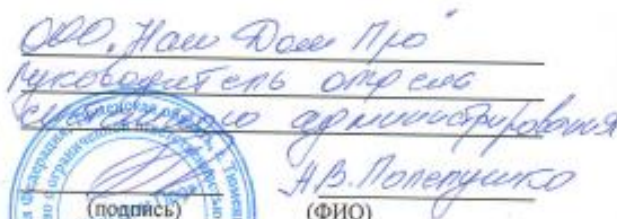 ООО „Наш Дом Про"
Руководитель отдела
системного администрирования
А.В. Полепушко
(подпись) (ФИО)